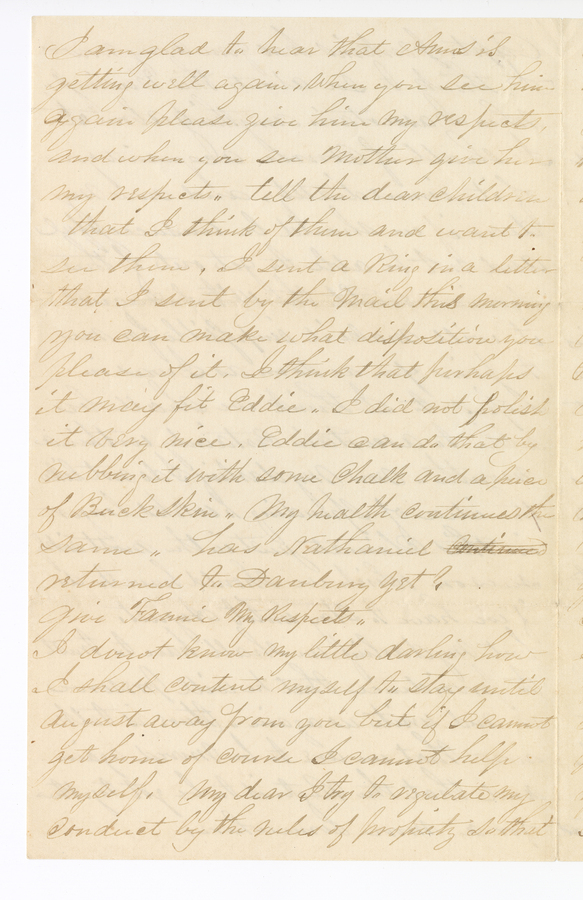 I am glad to hear that Amos is
getting well again, When you see him
again please give him my respects,
and when you see Mother give her
my respects,, tell the dear children
that I think of them and want to
see them, I sent a Ring in a letter
that I sent by the Mail this morning
you can make what disposition you
please of it. I think that perhaps
it may fit Eddie,, I did not polish
it very nice. Eddie can do that by
rubbing it with some Chalk and a piece
of Buck skin,, My health continues the
same,, has Nathaniel continued
returned to Danbury yet?
give Fannie My Respects,,
I do not know my little darling how
I shall content myself to stay until
august away from you but if I cannot
get home of course I cannot help
myself. My dear I try to regulate my
conduct by the rules of propriety so that